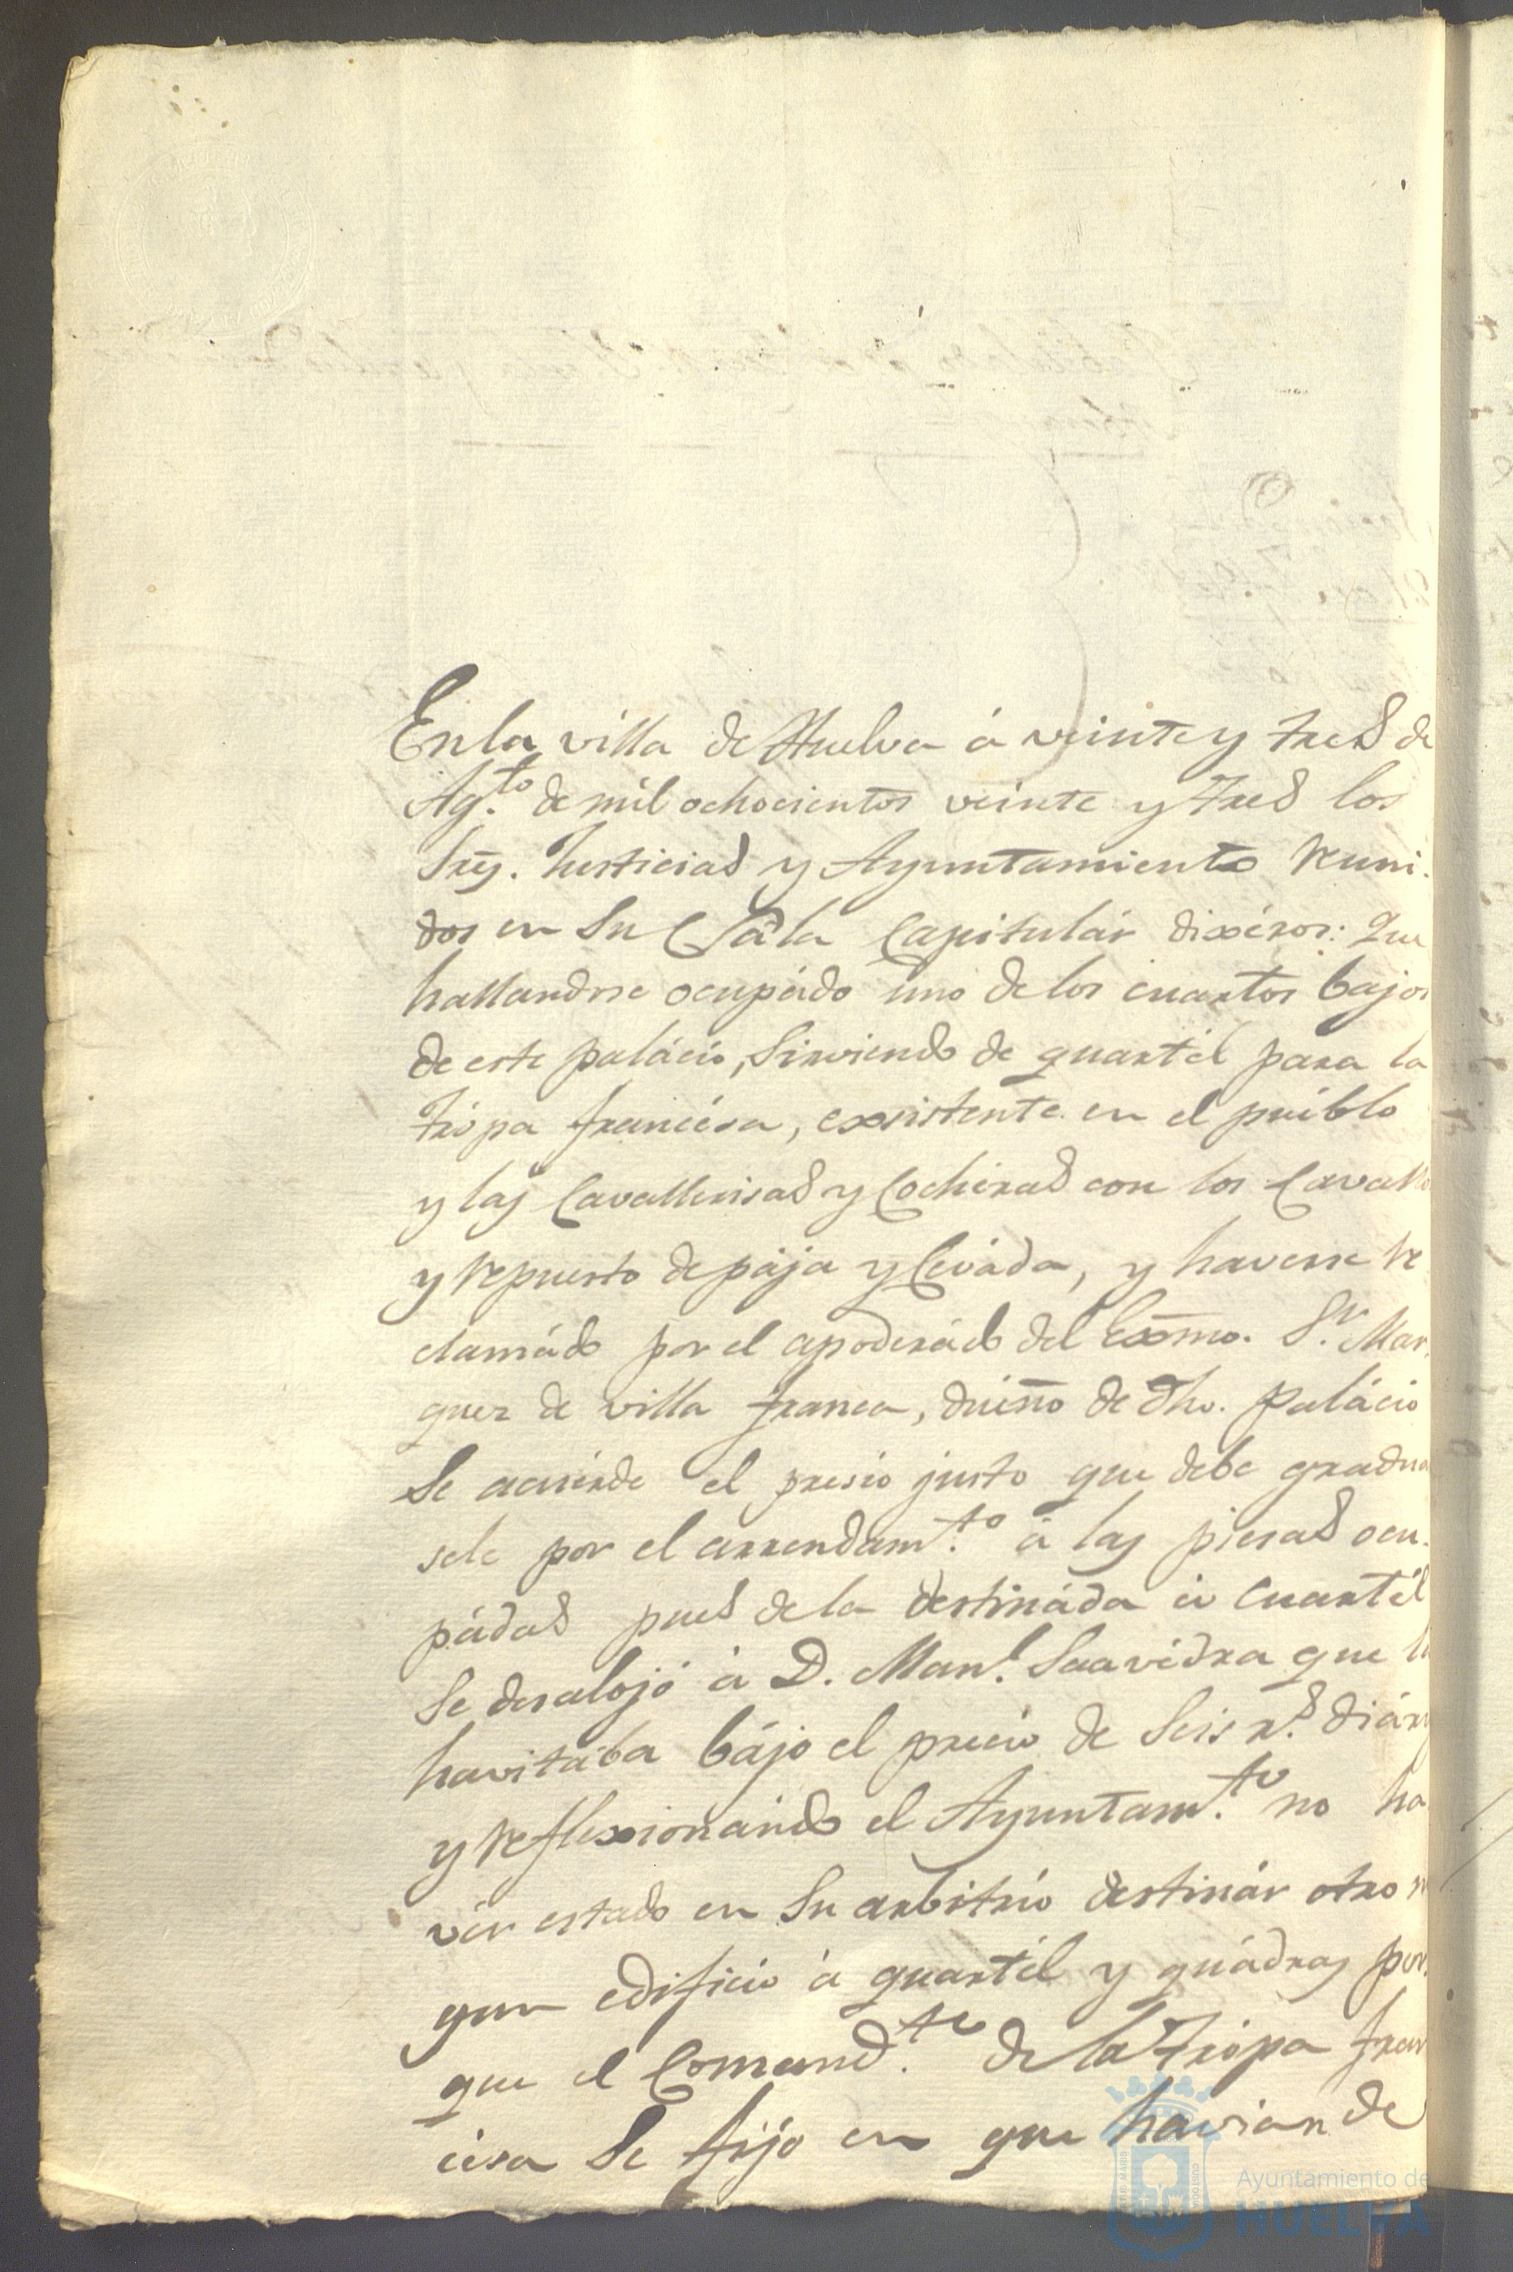 En la villa de Huelva á veinte y tres de
Ag.to de mil ochocientos veinte y tres los
Srẽs. Justicias y Ayuntamiento reuni-
dos en su Sala Capitulár dixéron: Que
hallandose ocupádo uno de los cuartos bajos
de este palácio, sirviendo de quartél para la
trópa francésa, exsistente en el puéblo
y las Cavallerisas y Cochéras con los Cavallo
y repuesto de pája y Ceváda, y haverse re
clamádo por el apoderádo del Exmo. S.r Mar-
quez de villa franca, duéño de dho. palácio
se acuérde el presio justo que debe gradua
sele por el arrendam.to á las piesas ocu-
pádas pues de la destináda á cuartél
se desalojó á D. Man.l Saavédra que l
havitába bájo el précio de seis r.s diár
y reflexionándo el Ayuntam.to no ha
vér estado en su arbitrio destinár otro n
gun edificio á quartél y quádras por-
que el Comand.te de la trópa fran
césa se fijó en que havian de
Ayuntamiento de
HUELVA